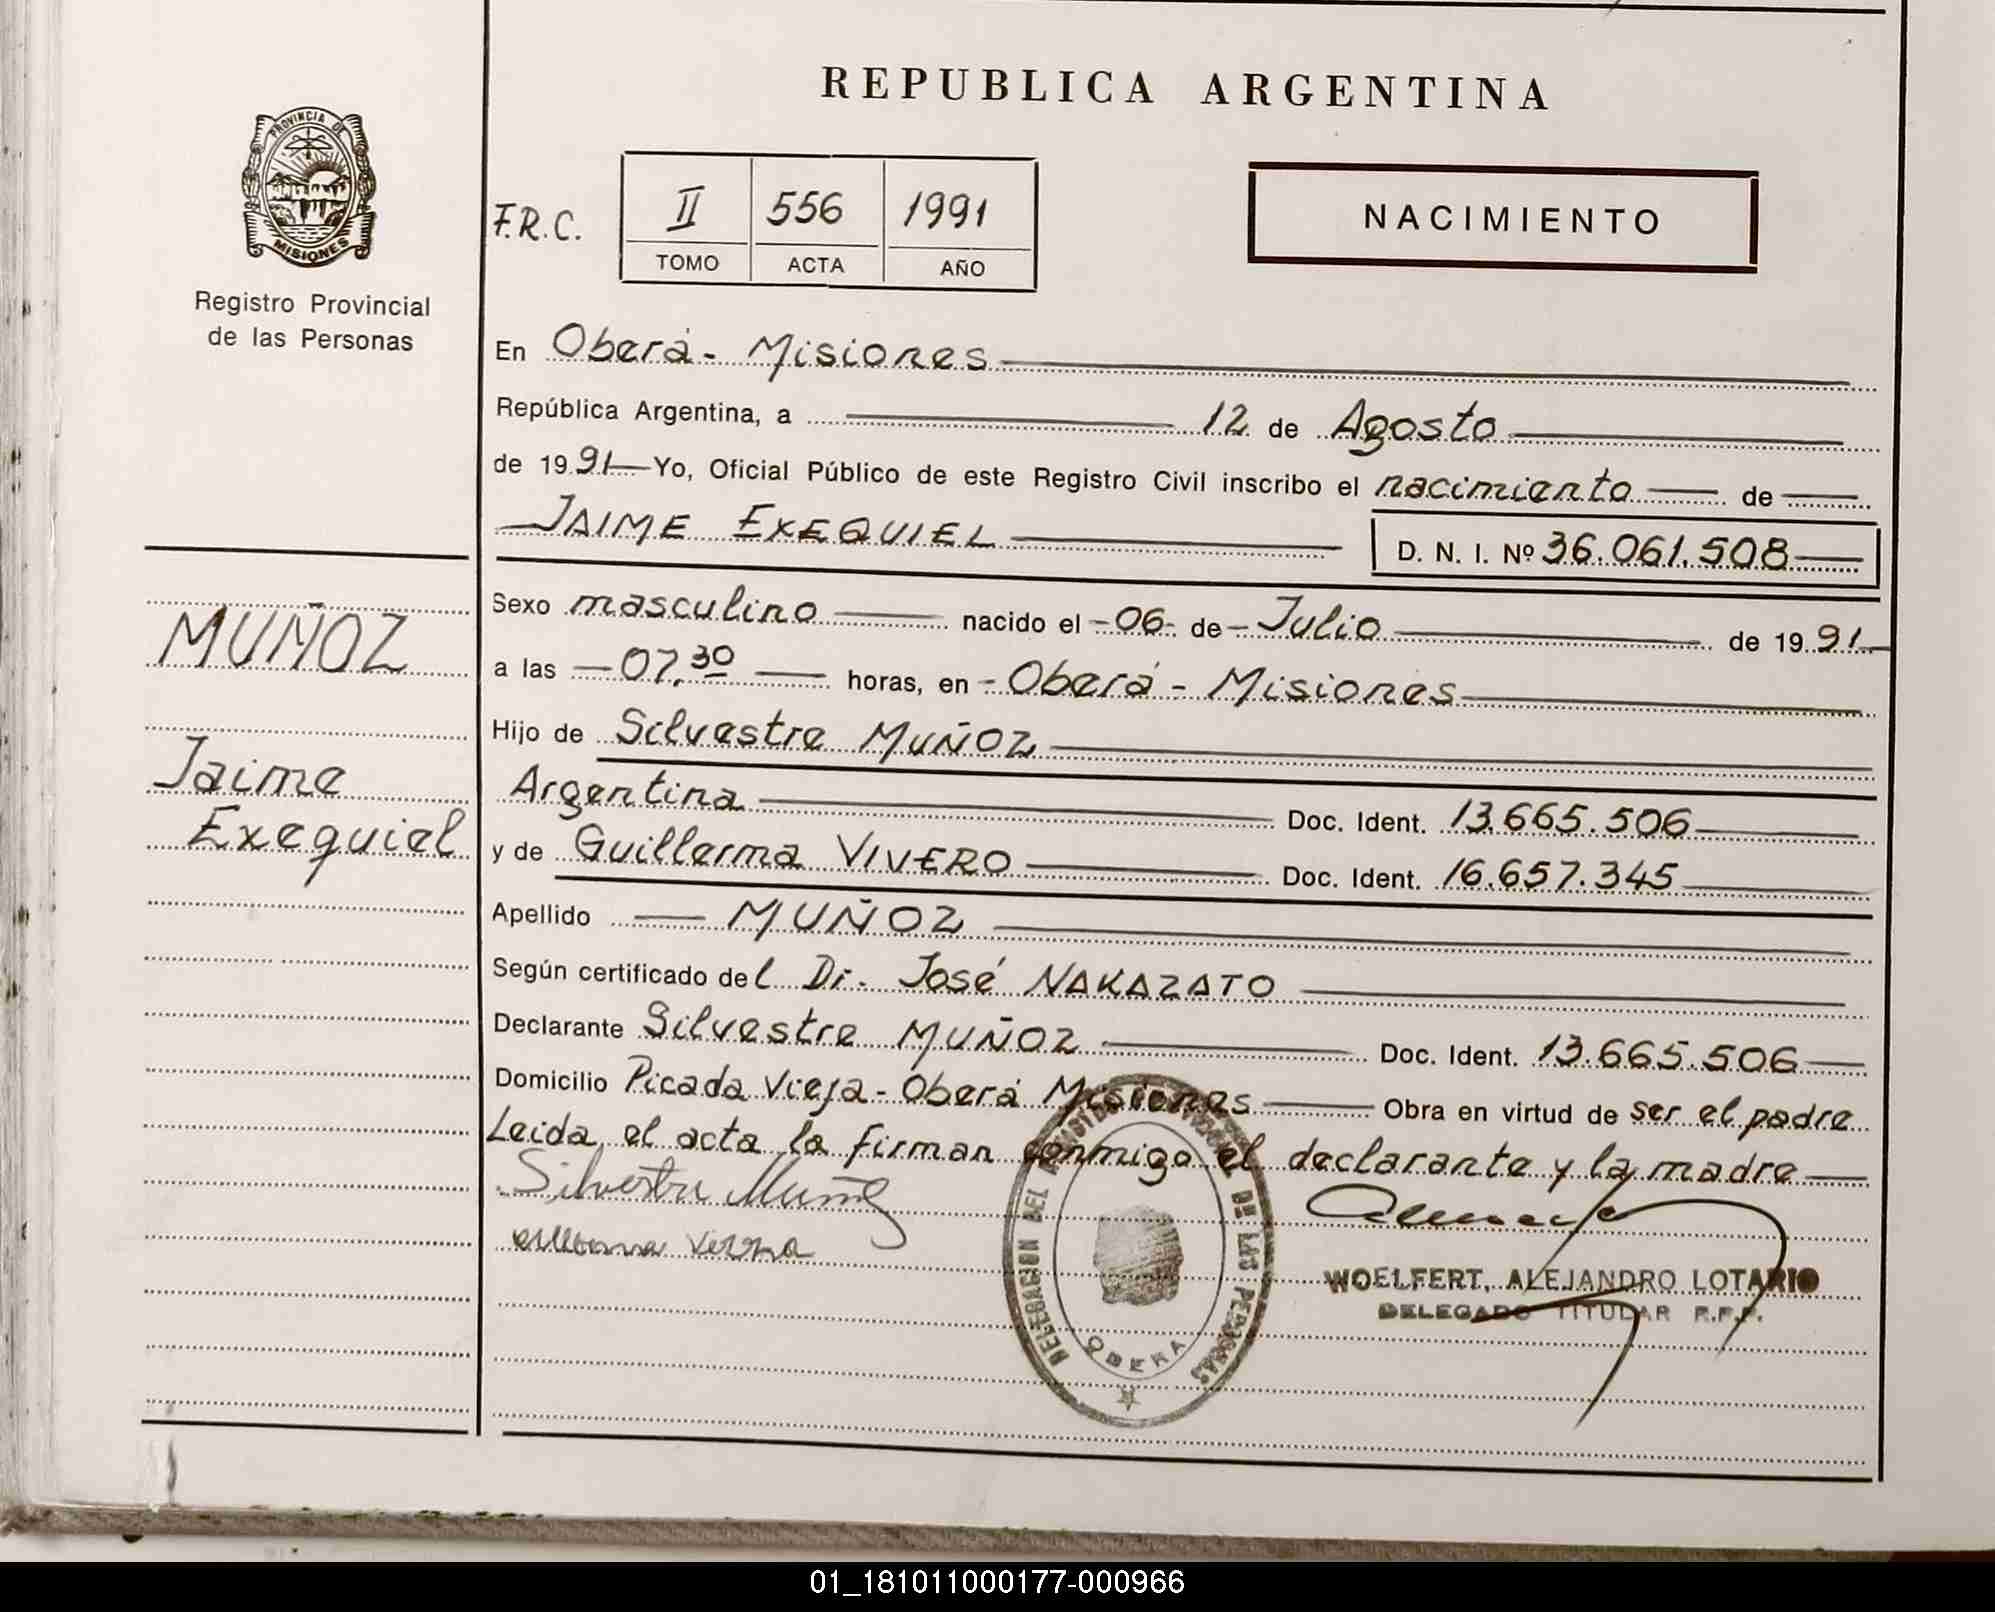 REPUBLICA ARGENTINA
PROVINCIA DE
MISIONES
Registro Provincial
de las Personas
F.R.C.
II 556 1991
TOMO ACTA AÑO
NACIMIENTO
En Oberá - Misiones
República Argentina, a 12 de Agosto
de 1991 Yo, Oficial Público de este Registro Civil inscribo el nacimiento de
JAIME EXEQUIEL D. N. I. Nº 36.061.508
MUÑOZ
Jaime
Exequiel
Sexo masculino nacido el -06- de - Julio de 1991
a las 07,30 horas, en - Oberá - Misiones
Hijo de Silvestre MUÑOZ
Argentina Doc. Ident. 13.665.506
y de Guillerma VIVERO Doc. Ident. 16.657.345
Apellido MUÑOZ
Según certificado del Dr. José NAKAZATO
Declarante Silvestre MUÑOZ Doc. Ident. 13.665.506
Domicilio Picada Vieja - Oberá Misiones Obra en virtud de ser el padre
Leida el acta la firman conmigo el declarante y la madre
Silvestre Muñoz
DELEGACION DEL REGISTRO PROVINCIAL DE LAS PERSONAS
OBERA
WOELFERT, ALEJANDRO LOTARIO
DELEGADO TITULAR R.P.P.
01_181011000177-000966